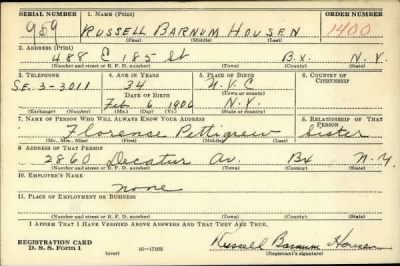 SERIAL NUMBER 1. NAME (Print) ORDER NUMBER
959 RUSSELL BARNUM HOUSEN 1400
(First) (Middle) (Last)
2. ADDRESS (Print)
488 E 185 St Bx. N.Y.
(Number and street or R. F. D. number) (Town) (County) (State)
3. TELEPHONE 4. AGE IN YEARS 5. PLACE OF BIRTH 6. COUNTRY OF CITIZENSHIP
SE. 3-3011 34 N.Y.C
DATE OF BIRTH (Town or county)
Feb 6 1906 N.Y.
(Exchange) (Number) (Mo.) (Day) (Yr.) (State or country)
7. NAME OF PERSON WHO WILL ALWAYS KNOW YOUR ADDRESS 8. RELATIONSHIP OF THAT PERSON
Florence Pettigrew Sister
(Mr., Mrs., Miss) (First) (Middle) (Last)
9. ADDRESS OF THAT PERSON
2860 Decatur Av. Bx N.Y.
(Number and street or R. F. D. number) (Town) (County) (State)
10. EMPLOYER'S NAME
None
11. PLACE OF EMPLOYMENT OR BUSINESS
(Number and street or R. F. D. number) (Town) (County) (State)
I AFFIRM THAT I HAVE VERIFIED ABOVE ANSWERS AND THAT THEY ARE TRUE.
REGISTRATION CARD
D. S. S. Form 1 (over) 16-17105
Russell Barnum Housen
(Registrant's signature)